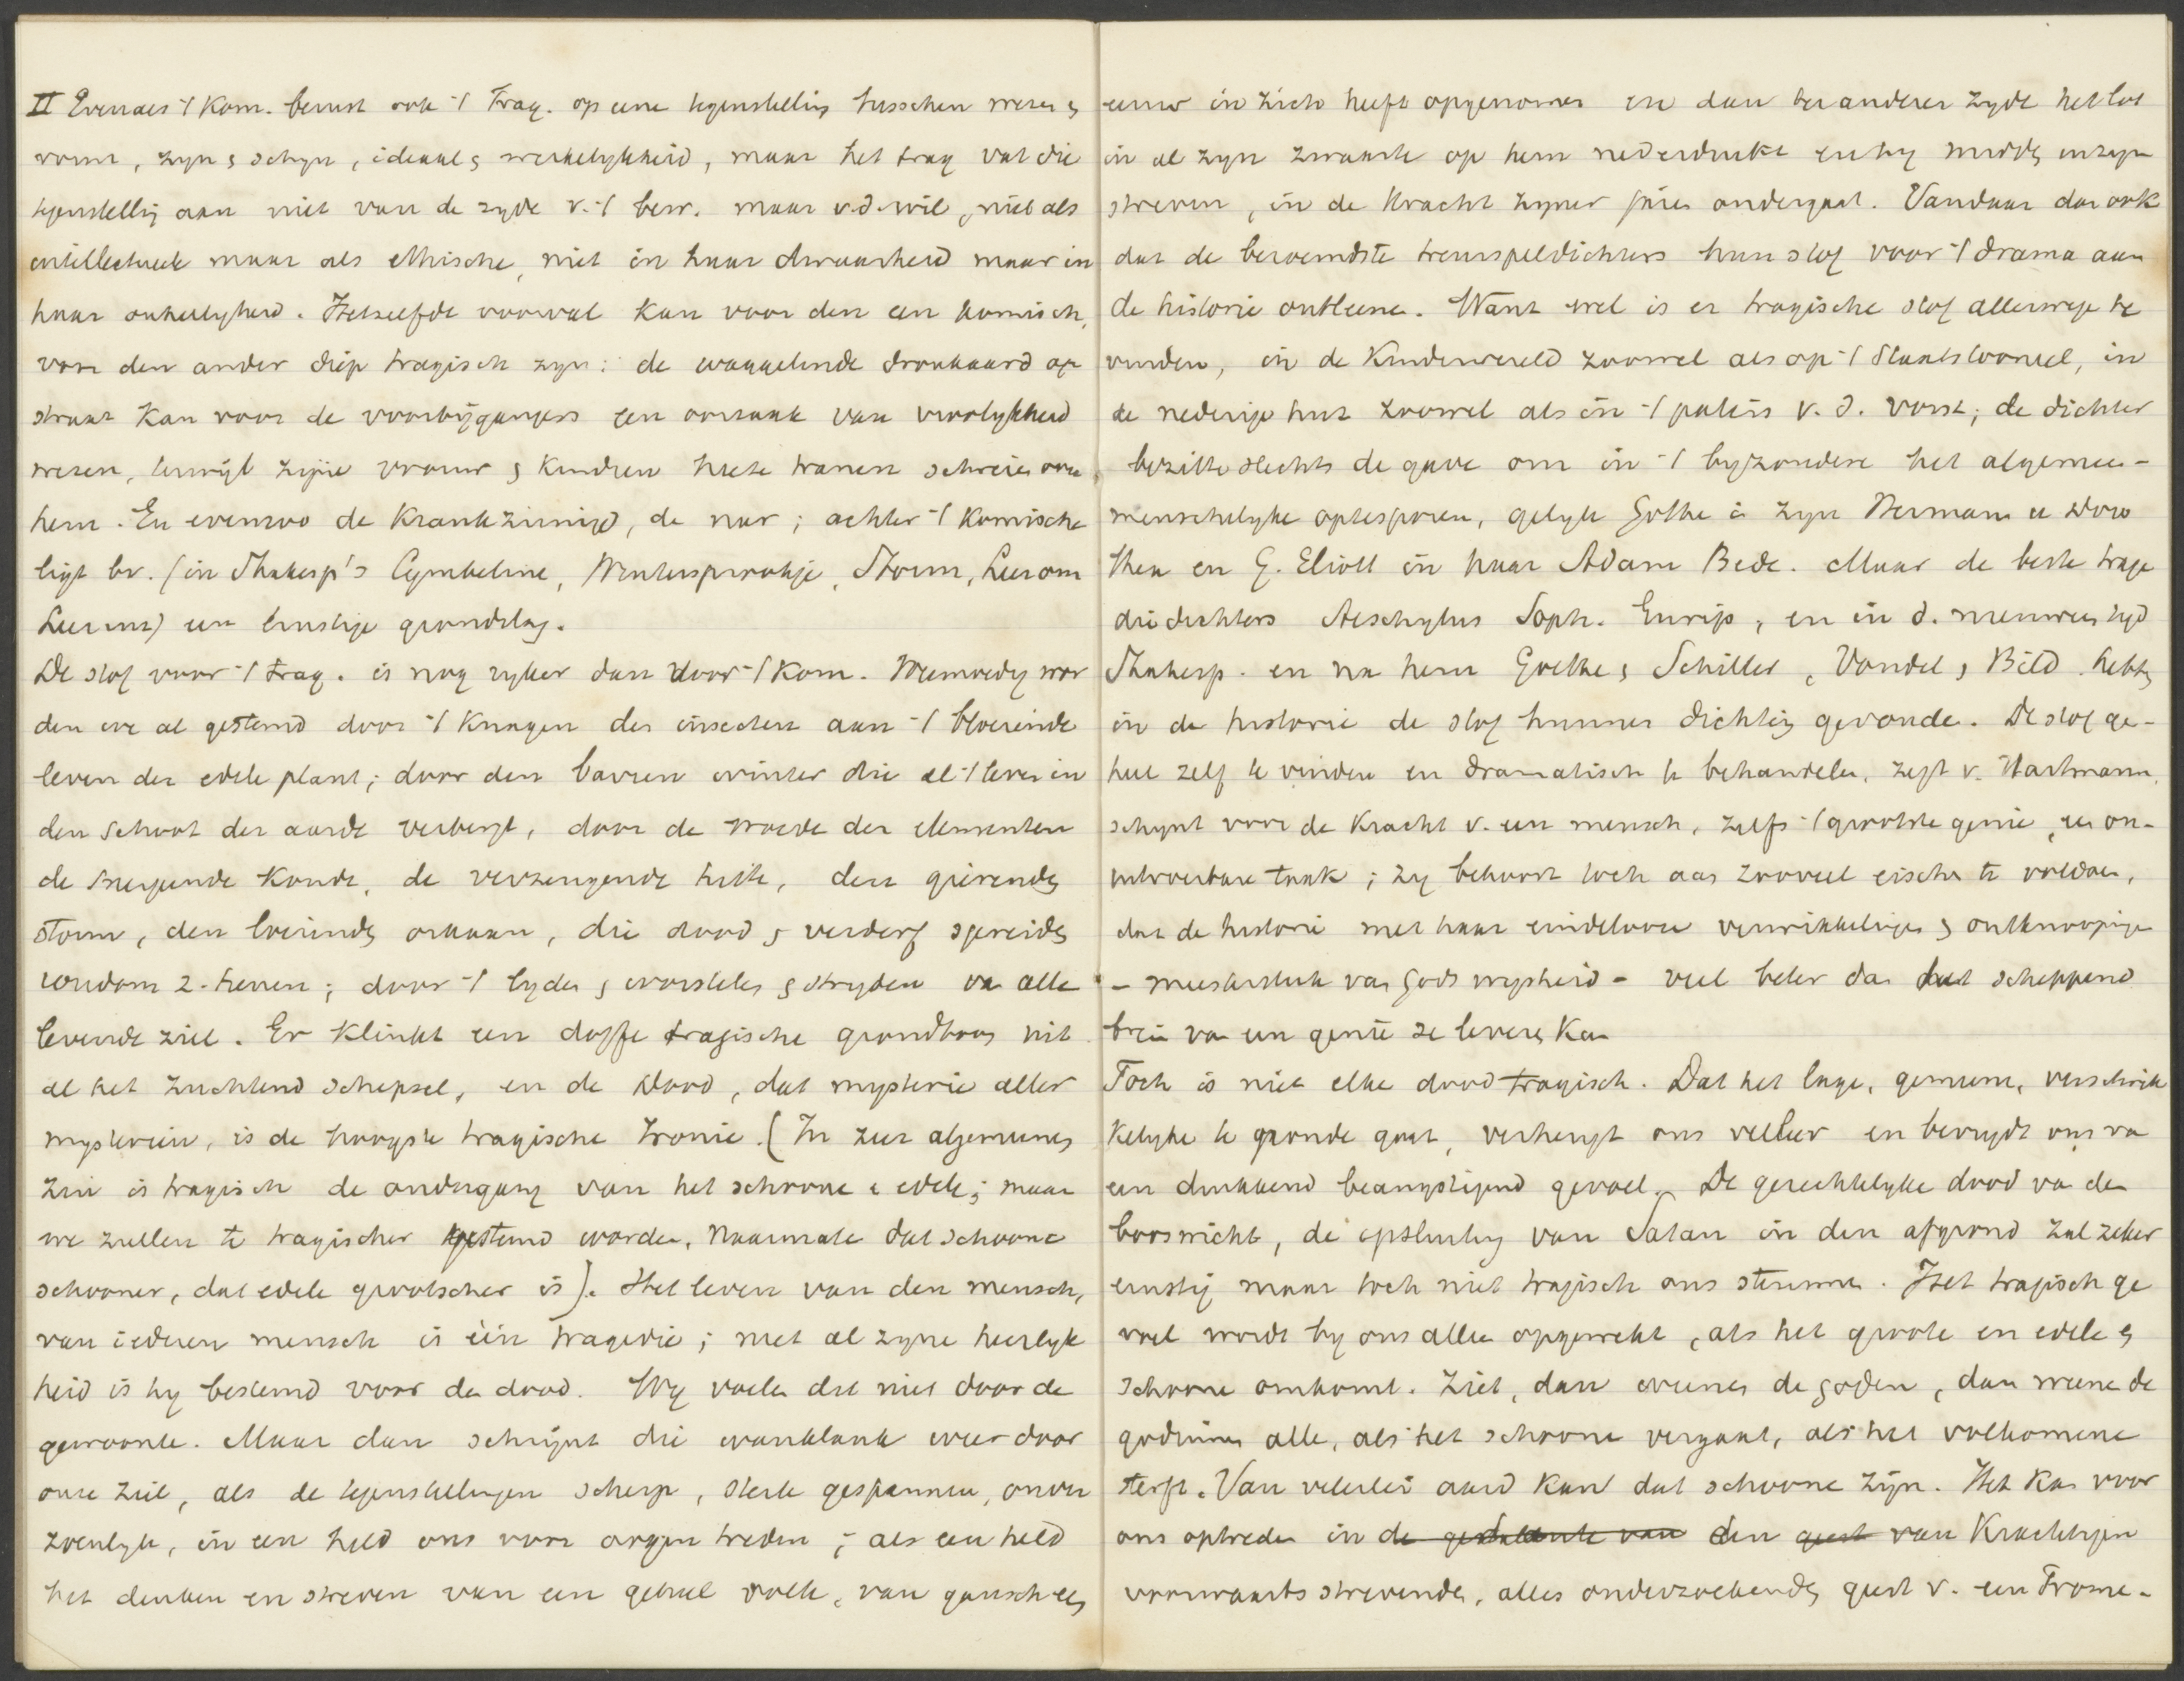 II Evenals 't Kom. berust ook 't Trag. op eene tegenstelling tusschen wezen &
vorm, zyn & schyn, ideaal & werkelykheid, maar het trag vat die
tegenstellig aan niet van de zyde v. 't bew. maar v.d. wil, niet als
intellectueele maar als ethische, niet in haar dwaasheid maar in
haar onheilyheid. Hetzelfde voorval kan voor den een komisch,
voor den ander diep tragisch zyn: de waggelende dronkaard op
straat kan voor de voorbijgangers een oorzaak van vroolykheid
wezen, terwijl zijne vrouw & kindren heete tranen schreien over
hem. En evenzoo de krankzinnige, de nar; achter 't komische
ligt bv. (in Shakesp's Cymbeline, Wintersprookje, Storm, Leer om
Leer enz) een ernstige grondslag.
De stof voor 't trag. is nog ryker dan voor 't kom. Weemoedig wor
den we al gestemd door 't knagen der insecten aan 't bloeiende
leven der edele plant; door den barren winter die al 't leven in
den schoot der aarde verbergt, door de woede der elementen
de snerpende koude, de verzengende hitte, den gierenden
storm, den loeienden orkaan, die dood & verderf spreiden
rondom z. henen; door 't lyden & worstelen & stryden van alle
levende ziel. Er klinkt een doffe tragische grondtoon uit
al het zuchtend schepsel, en de Dood, dat mysterie aller
mysteriën, is de hoogste tragische Ironie. (In zeer algemeenen
zin is tragisch de ondergang van het schoone & edele; maar
we zullen te tragischer gestemd worden, naarmate dat schoone
schooner, dat edele grootscher is). Het leven van den mensch,
van iederen mensch is één tragedie; met al zyne heerlyk
heid is hy bestemd voor den dood. Wy voelen dat niet door de
gewoonte. Maar dan schrijnt die wanklank weer door
onze ziel, als de tegenstellingen scherp, sterk gespannen, onver
zoenlyk, in een held ons voor oogen treden; als een held
het denken en streven van een geheel volk, van gansch een
eeuw in zich heeft opgenomen en dan ter anderer zyde het lot
in al zyn zwaarte op hem nederdrukt en hy midden in zyn
streven, in de kracht zyner jaren ondergaat. Vandaar dan ook
dat de beroemdste treurspeldichters hun stof voor 't drama aan
de historie ontleenen. Want wel is er tragische stof allerwege te
vinden, in de kinderwereld zoowel als op 't staatstooneel, in
de nederige hut zoowel als in 't paleis v. d. vorst; de dichter
bezitte slechts de gave om in 't byzondere het algemeen-
menschelyke optesporen, gelyk Göthe in zyn Herman u Doro
thea en G. Eliott in haar Adam Bede. Maar de beste trage
diedichters Aeschylus Soph. Eurip, en in d. nieuweren tyd
Shakesp. en na hem Goethe & Schiller, Vondel & Bild. hebben
in de historie de stof hunner dichting gevonden. De stof ge-
heel zelf te vinden en dramatisch te behandelen, zegt v. Hartmann,
schynt voor de kracht v. een mensch, zelfs 't grootste genie, een on-
uitvoerbare taak; zy behoort toch aan zooveel eischen te voldoen,
dat de historie met haar eindelooze verwikkelingen & ontknoopingen
- meesterstuk van Gods wysheid - veel beter dan het scheppend
brein van een genie ze leveren kan
Toch is niet elke dood tragisch. Dat het lage, gemeene, verschrik
kelyke te gronde gaat, verheugt ons veeleer en bevrydt ons van
een drukkend beangstigend gevoel. De gerechtelyke dood van den
booswicht, de opsluiting van Satan in den afgrond zal zeker
ernstig maar toch niet tragisch ons stemmen. Het tragisch ge
voel wordt by ons alleen opgewekt, als het groote en edele &
schoone omkomt. Ziet, dan weenen de goden, dan weenen de
godinnen alle, als het schoone vergaat, als het volkomene
sterft. Van velerlei aard kan dat schoone zijn. Het kan voor
ons optreden in de gestalte van den geest van krachtigen
voorwaarts strevenden, alles onderzoekenden geest v. een Prome-